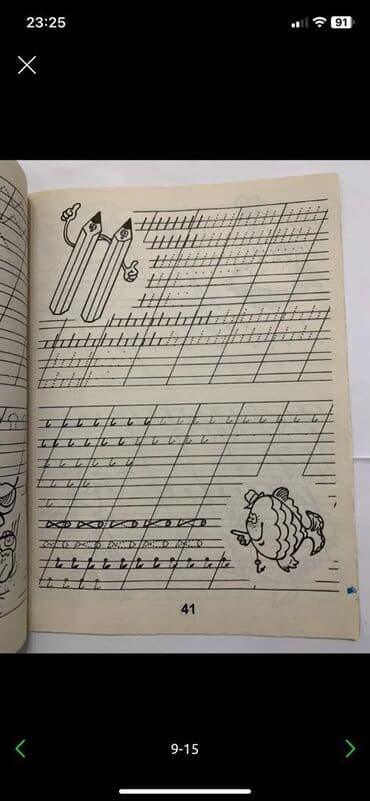 23:25
91
41
9-15